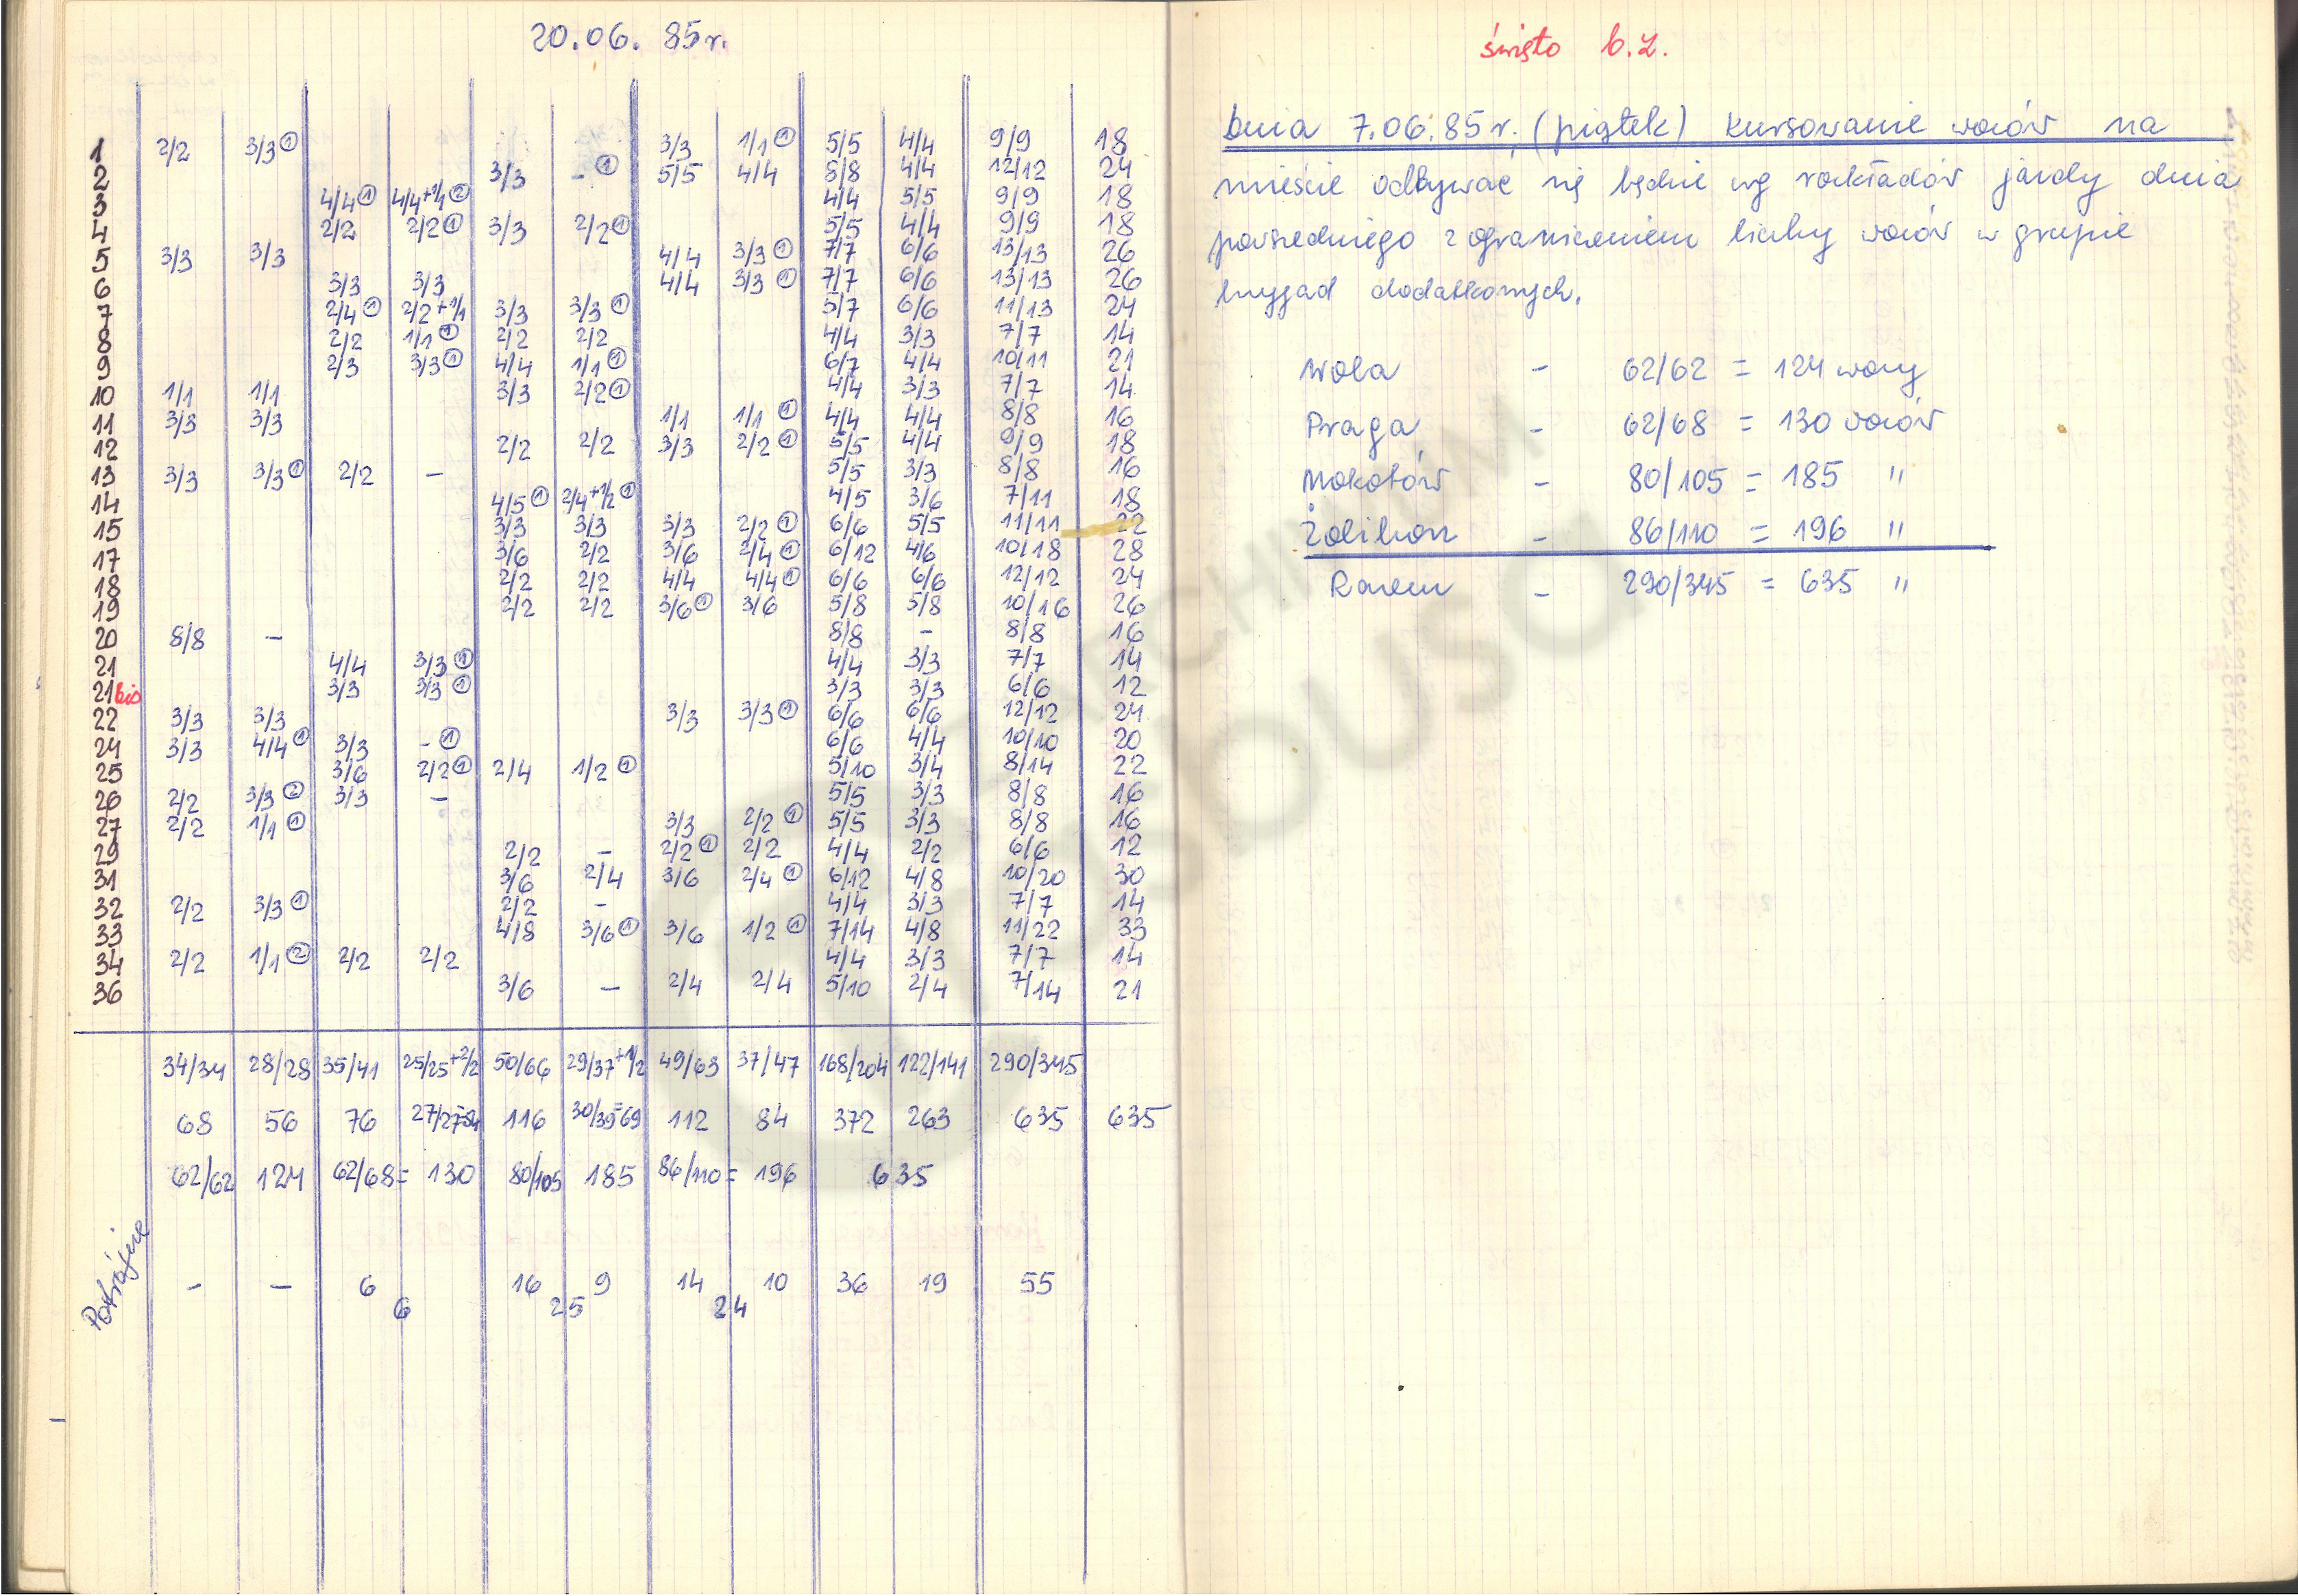 20.06. 85r.
1 2/2 3/3 ① 3/3 1/1 ① 5/5 4/4 9/9 18
2 3/3 - ① 5/5 4/4 8/8 4/4 12/12 24
3 4/4 ① 4/4+1/1 ② 4/4 5/5 9/9 18
4 2/2 2/2 ① 3/3 2/2 ① 5/5 4/4 9/9 18
5 3/3 3/3 4/4 3/3 ① 7/7 6/6 13/13 26
6 3/3 3/3 4/4 3/3 ① 7/7 6/6 13/13 26
7 2/4 ① 2/2+1/1 3/3 3/3 ① 5/7 6/6 11/13 24
8 2/2 1/1 ① 2/2 2/2 4/4 3/3 7/7 14
9 2/3 3/3 ① 4/4 1/1 ① 6/7 4/4 10/11 21
10 1/1 1/1 3/3 2/2 ① 4/4 3/3 7/7 14
11 3/3 3/3 1/1 1/1 ① 4/4 4/4 8/8 16
12 2/2 2/2 3/3 2/2 ① 5/5 4/4 9/9 18
13 3/3 3/3 ① 2/2 - 5/5 3/3 8/8 16
14 4/5 ① 2/4+1/2 ① 4/5 3/6 7/11 18
15 3/3 3/3 3/3 2/2 ① 6/6 5/5 11/11 22
17 3/6 2/2 3/6 2/4 ① 6/12 4/6 10/18 28
18 2/2 2/2 4/4 4/4 ① 6/6 6/6 12/12 24
19 2/2 2/2 3/6 ① 3/6 5/8 5/8 10/16 26
20 8/8 - 8/8 - 8/8 16
21 4/4 3/3 ① 4/4 3/3 7/7 14
21 bis 3/3 3/3 ① 3/3 3/3 6/6 12
22 3/3 3/3 3/3 3/3 ① 6/6 6/6 12/12 24
24 3/3 4/4 ① 3/3 - ① 6/6 4/4 10/10 20
25 3/6 2/2 ① 2/4 1/2 ① 5/10 3/4 8/14 22
26 2/2 3/3 ② 3/3 - 5/5 3/3 8/8 16
27 2/2 1/1 ① 3/3 2/2 ① 5/5 3/3 8/8 16
29 2/2 - 2/2 ① 2/2 4/4 2/2 6/6 12
31 3/6 2/4 3/6 2/4 ① 6/12 4/8 10/20 30
32 2/2 3/3 ① 2/2 - 4/4 3/3 7/7 14
33 4/8 3/6 ① 3/6 1/2 ① 7/14 4/8 11/22 33
34 2/2 1/1 ② 2/2 2/2 4/4 3/3 7/7 14
36 3/6 - 2/4 2/4 5/10 2/4 7/14 21
34/34 28/28 35/41 25/25+2/2 50/66 29/37+1/2 49/63 37/47 168/204 122/141 290/345
68 56 76 27/27=54 116 30/39=69 112 84 372 263 635 635
62/62 124 62/68= 130 80/105 185 86/110= 196 635
Potrójne
- - 6 16 9 14 10 36 19 55
6 25 24
święto b.Z.
Dnia 7.06.85r. (piątek) kursowanie wozów na
mieście odbywać się będzie wg rozkładów jazdy dnia
powszedniego z ograniczeniem liczby wozów w grupie
brygad dodatkowych.
Wola - 62/62 = 124 wozy
Praga - 62/68 = 130 wozów
Mokotów - 80/105 = 185 "
Żoliborz - 86/110 = 196 "
Razem - 290/345 = 635 "